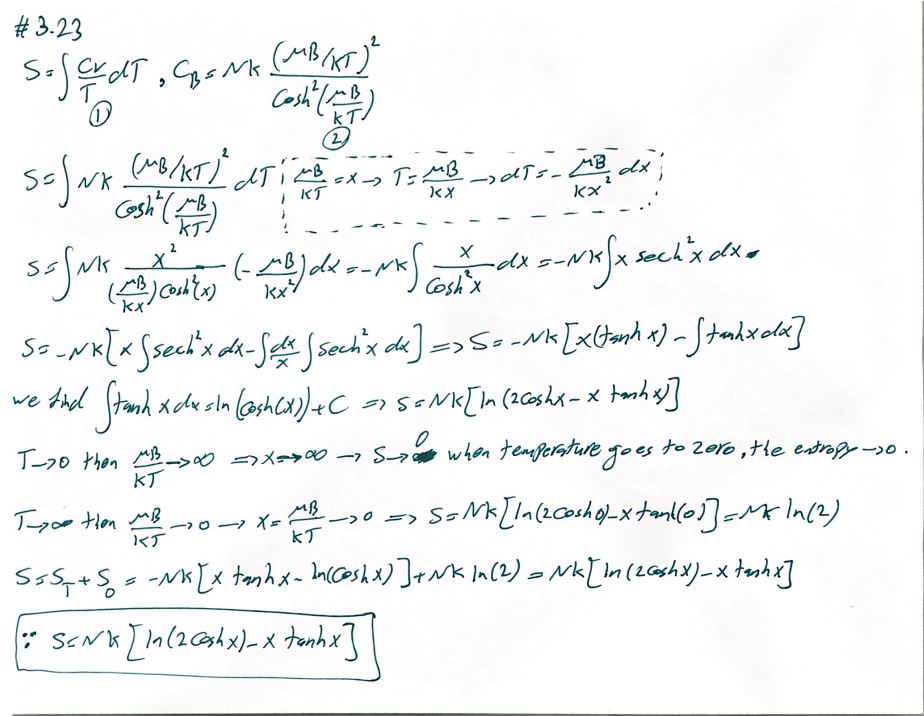 #3.23
S=∫ Cv/T dT , C_B = Nk (μB/kT)² / Cosh²(μB/kT)
① ②
S=∫ Nk (μB/kT)² / Cosh²(μB/kT) dT ; μB/kT = x → T = μB/kx → dT = - μB/kx² dx ;
S=∫ Nk x² / ((μB/kx) Cosh²(x)) (- μB/kx²) dx = -Nk ∫ x/Cosh²x dx = -Nk ∫ x sech²x dx
S= -Nk [x ∫ sech²x dx - ∫ dx/x ∫ sech²x dx] => S= -Nk [x(tanh x) - ∫ tanh x dx]
we find ∫ tanh x dx = ln (Cosh(x)) + C => S=Nk [ln (2coshx - x tanh x)]
T→0 then μB/kT → ∞ => x → ∞ → S → 0 when temperature goes to zero, the entropy → 0.
T→∞ then μB/kT → 0 → x = μB/kT → 0 => S=Nk [ln(2cosh0) - x tanh(0)] = Nk ln(2)
S=S_T + S_0 = -Nk [x tanh x - ln(Cosh x)] + Nk ln(2) = Nk [ln (2coshx) - x tanh x]
∵ S=Nk [ln(2coshx) - x tanh x]